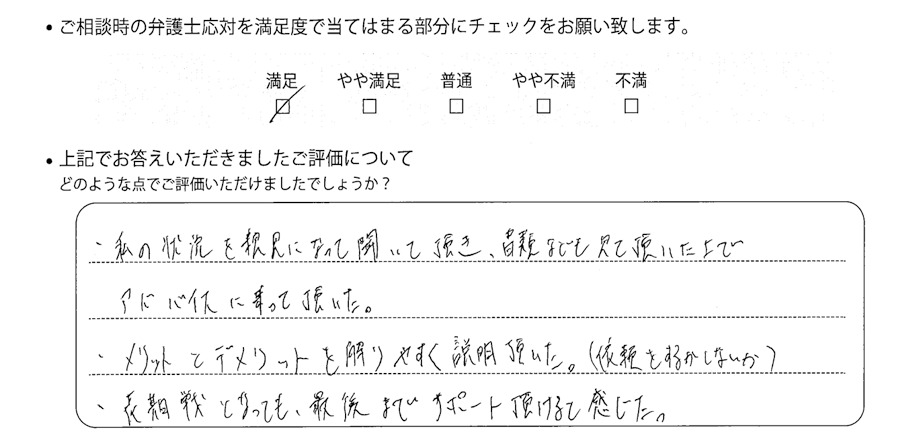 ・ご相談時の弁護士応対を満足度で当てはまる部分にチェックをお願い致します。
満足 やや満足 普通 やや不満 不満
・上記でお答えいただきましたご評価について
どのような点でご評価いただけましたでしょうか？
・私の状況を親見になって聞いて頂き、書類なども見て頂いた上で
アドバイスに乗って頂いた。
・メリットとデメリットを解りやすく説明頂いた。(依頼をするかしないか)
・長期戦となっても、最後までサポート頂けると感じた。